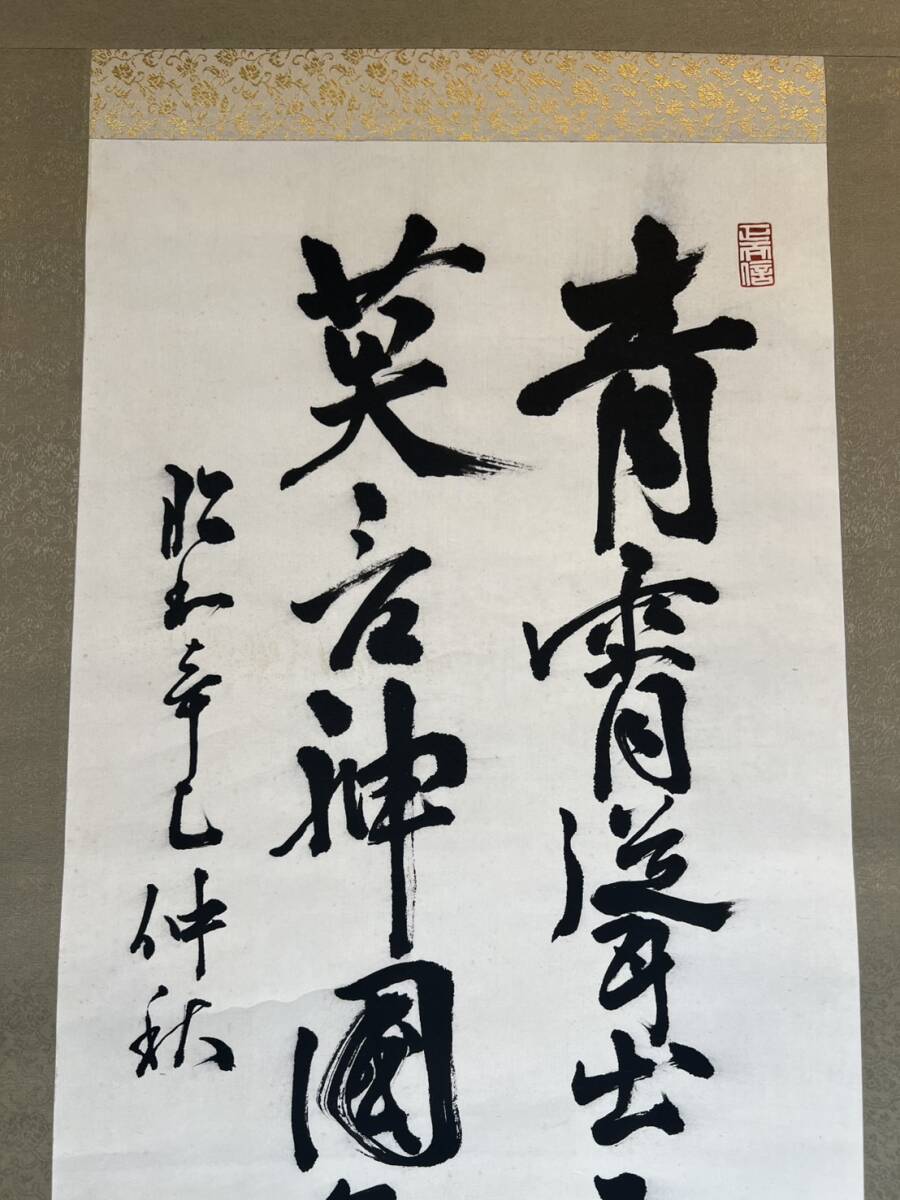 青霄聳出
莫言神國
昭和辛巳仲秋